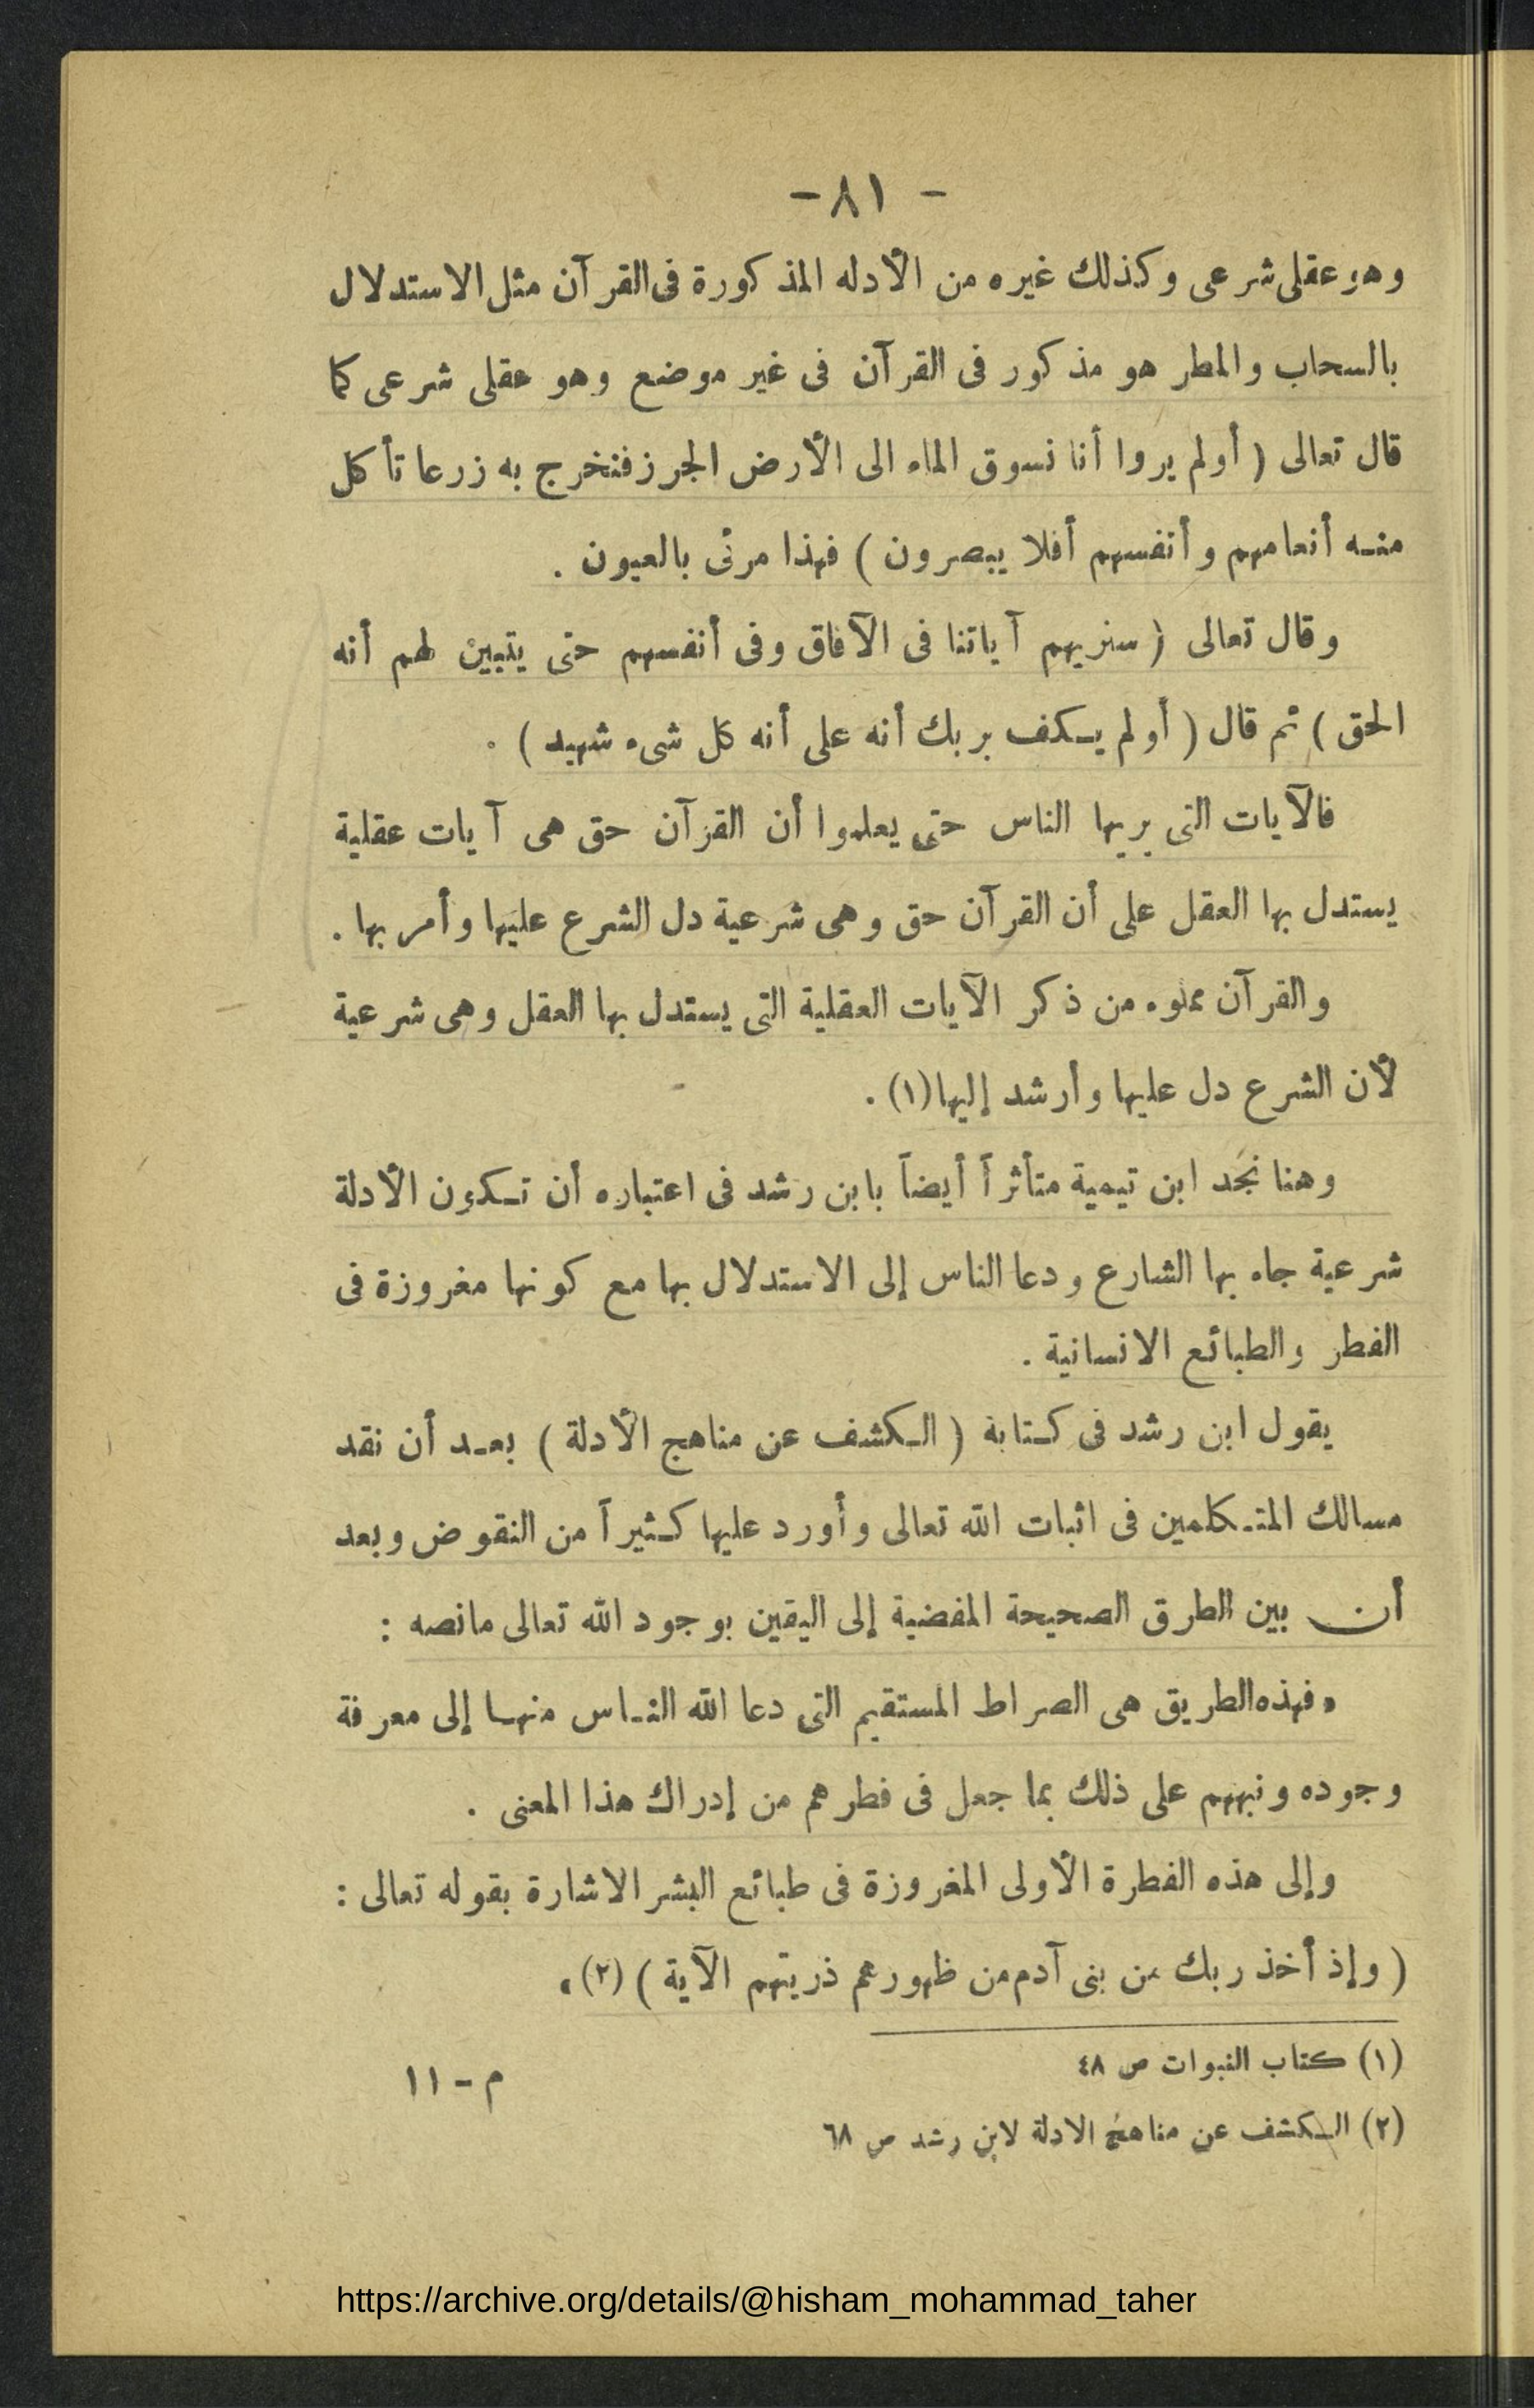 - ٨١ -
وهو عقلى شرعى وكذلك غيره من الأدله المذكورة فى القرآن مثل الاستدلال
بالسحاب والمطر هو مذكور فى القرآن فى غير موضع وهو عقلى شرعى كما
قال تعالى ( أولم يروا أنا نسوق الماء الى الأرض الجرز فنخرج به زرعا تأكل
منه أنعامهم وأنفسهم أفلا يبصرون ) فهذا مرئى بالعيون .
وقال تعالى ( سنريهم آياتنا فى الآفاق وفى أنفسهم حتى يتبين لهم أنه
الحق ) ثم قال ( أولم يكف بربك أنه على أنه كل شىء شهيد ) .
فالآيات التى يريها الناس حتى يعلموا أن القرآن حق هى آيات عقلية
يستدل بها العقل على أن القرآن حق وهى شرعية دل الشرع عليها وأمر بها .
والقرآن مملوء من ذكر الآيات العقلية التى يستدل بها العقل وهى شرعية
لأن الشرع دل عليها وأرشد إليها (١) .
وهنا نجد ابن تيمية متأثراً أيضاً بابن رشد فى اعتباره أن تكون الأدلة
شرعية جاء بها الشارع ودعا الناس إلى الاستدلال بها مع كونها مغروزة فى
الفطر والطبائع الانسانية .
يقول ابن رشد فى كتابة ( الكشف عن مناهج الأدلة ) بعد أن نقد
مسالك المتكلمين فى اثبات الله تعالى وأورد عليها كثيراً من النقوض وبعد
أن بين الطرق الصحيحة المفضية إلى اليقين بوجود الله تعالى مانصه :
« فهذه الطريق هى الصراط المستقيم التى دعا الله الناس منها إلى معرفة
وجوده ونبههم على ذلك بما جعل فى فطرهم من إدراك هذا المعنى .
وإلى هذه الفطرة الأولى المغروزة فى طبائع البشر الاشارة بقوله تعالى :
( وإذ أخذ ربك من بنى آدم من ظهورهم ذريتهم الآية ) (٢) .
(١) كتاب النبوات ص ٤٨
م - ١١
(٢) الكشف عن مناهج الادلة لابن رشد ص ٦٨
https://archive.org/details/@hisham_mohammad_taher